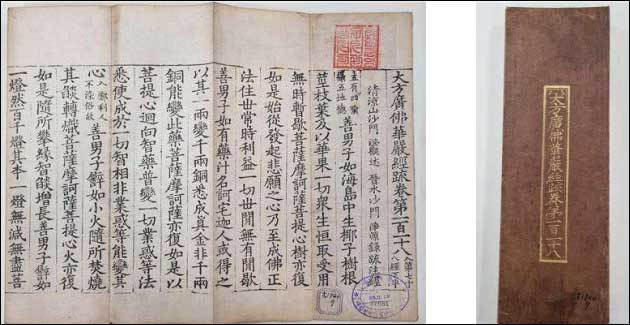 大方廣佛華嚴經疏卷第一百二十八
清涼山沙門 澄觀述 晉水沙門 淨源錄疏注經
善男子如海島中生椰子樹根
莖枝葉及以華果一切衆生恒取受用
無時暫歇菩薩摩訶薩菩提心樹亦復
如是始從發起悲願之心乃至成佛正
法住世常時利益一切世間無有間歇
善男子如有藥汁名訶宅迦人或得之
以其一兩變千兩銅悉成真金非千兩
銅能變此藥菩薩摩訶薩亦復如是以
菩提心迴向智藥普變一切業惑等法
悉使成於一切智相非業惑等能變其
心 善男子譬如小火隨所焚燒
其燄轉熾菩薩摩訶薩菩提心火亦復
如是隨所攀緣智燄增長善男子譬如
一燈然百千燈其本一燈無減無盡菩
大方廣佛華嚴經疏卷第一百二十八